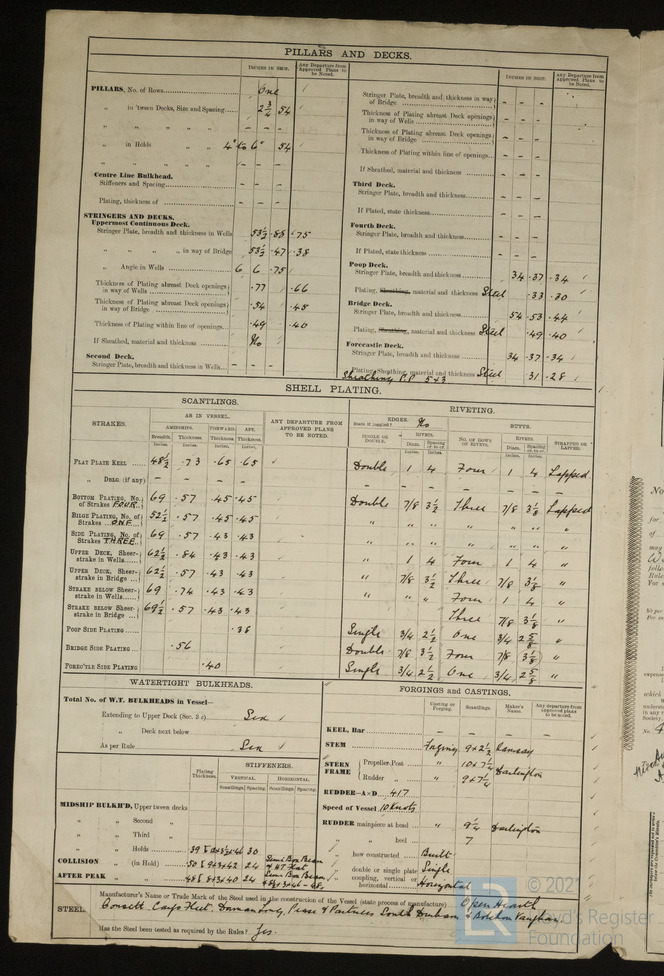 PILLARS AND DECKS.
INCHES IN SHIP. Any Departure from Approved Plans to be Noted.
PILLARS, No. of Rows One
„ in 'tween Decks, Size and Spacing 2 3/4 54
„ „ „ „ – – –
„ in Holds „ „ 4" to 6" 54
„ „ „ „ – – –
Centre Line Bulkhead.
Stiffeners and Spacing – – –
Plating, thickness of – – –
STRINGERS AND DECKS.
Uppermost Continuous Deck.
Stringer Plate, breadth and thickness in Wells 53 1/2 .85 .75
„ „ „ „ in way of Bridge 53 1/2 .47 .38
„ Angle in Wells 6 6 .75
Thickness of Plating abreast Deck openings in way of Wells .77 .66
Thickness of Plating abreast Deck openings in way of Bridge .54 .45
Thickness of Plating within line of openings .49 .40
If Sheathed, material and thickness No
Second Deck.
Stringer Plate, breadth and thickness in Wells – – –
INCHES IN SHIP. Any Departure from Approved Plans to be Noted.
Stringer Plate, breadth and thickness in way of Bridge – – –
Thickness of Plating abreast Deck openings in way of Wells – – –
Thickness of Plating abreast Deck openings in way of Bridge – – –
Thickness of Plating within line of openings – – –
If Sheathed, material and thickness – – –
Third Deck.
Stringer Plate, breadth and thickness – – –
If Plated, state thickness – – –
Fourth Deck.
Stringer Plate, breadth and thickness – – –
If Plated, state thickness – – –
Poop Deck.
Stringer Plate, breadth and thickness 34 .37 .34
Plating, Sheathing, material and thickness Steel .33 .30
Bridge Deck.
Stringer Plate, breadth and thickness 54 .53 .44
Plating, Sheathing, material and thickness Steel .49 .40
Forecastle Deck.
Stringer Plate, breadth and thickness 34 .37 .34
Plating, Sheathing, material and thickness Steel .31 .28
Sheathing P.P 5x3
SHELL PLATING.
SCANTLINGS.
STRAKES. AS IN VESSEL. ANY DEPARTURE FROM APPROVED PLANS TO BE NOTED.
AMIDSHIPS. FORWARD. AFT.
Breadth. Thickness. Thickness. Thickness.
Inches. Inches. Inches. Inches.
RIVETING.
EDGES. No BUTTS.
State if joggled?
SINGLE OR DOUBLE. RIVETS. NO. OF ROWS OF RIVETS. RIVETS. STRAPPED OR LAPPED.
Diam. Spacing cr. to cr. Diam. Spacing cr. to cr.
Inches. Inches. Inches. Inches.
FLAT PLATE KEEL 48 1/2 .73 .65 .65 Double 1 4 Four 1 4 Lapped
„ DBLG. (if any) – – – – – – – – – – –
BOTTOM PLATING, No. of Strakes FOUR 69 .57 .45 .45 Double 7/8 3 1/2 Three 7/8 3 1/8 Lapped
BILGE PLATING, No. of Strakes ONE 52 1/2 .57 .45 .45 „ „ „ „ „ „ „
SIDE PLATING, No. of Strakes THREE 69 .57 .43 .43 „ „ „ „ „ „ „
UPPER DECK, Sheerstrake in Wells 62 1/2 .84 .43 .43 „ 1 4 Four 1 4 „
UPPER DECK, Sheerstrake in Bridge 62 1/2 .57 .43 .43 „ 7/8 3 1/2 Three 7/8 3 1/8 „
STRAKE BELOW Sheerstrake in Wells 69 .74 .43 .43 „ „ „ Four 1 4 „
STRAKE BELOW Sheerstrake in Bridge 69 1/2 .57 .43 .43 Three 7/8 3 1/8 „
POOP SIDE PLATING .38 Single 3/4 2 1/2 One 3/4 2 5/8 „
BRIDGE SIDE PLATING .56 Double 7/8 3 1/2 Four 7/8 3 1/8 „
FORE'CTLE SIDE PLATING .40 Single 3/4 2 1/2 One 3/4 2 5/8 „
WATERTIGHT BULKHEADS.
Total No. of W.T. BULKHEADS in Vessel—
Extending to Upper Deck (Sec. 3 c) Six
„ Deck next below
As per Rule Six
STIFFENERS.
Plating Thickness. VERTICAL. HORIZONTAL.
Scantlings. Spacing. Scantlings. Spacing.
MIDSHIP BULKH'D, Upper tween decks
„ „ Second „
„ „ Third „
„ „ Holds .39 30
COLLISION „ (in Hold) .50 9x3x42 24 Semi Box Beam & WT Flat
AFTER PEAK „ „ .48 8x3x40 24 Semi Box Beam
FORGINGS and CASTINGS.
Casting or Forging. Scantlings. Maker's Name. Any departure from approved plans to be noted.
KEEL, Bar – – –
STEM Forging 9x2 1/2 Ramsay
STERN FRAME { Propeller Post „ 10x7 1/4 Darlington
Rudder „ „ 9x7 1/4
RUDDER—A×D 417
Speed of Vessel 10 Knots
RUDDER mainpiece at head „ 9 1/4 Darlington
„ „ heel 7
„ how constructed Built
„ double or single plate Single
„ coupling, vertical or horizontal Horizontal
STEEL. Manufacturer's Name or Trade Mark of the Steel used in the construction of the Vessel (state process of manufacture) Open Hearth
Consett Cargo Fleet, Dorman Long, Pease & Partners South Durham & Bolckow Vaughan
Has the Steel been tested as required by the Rules? Yes.
LR © 202
Lloyd's Register
Foundation